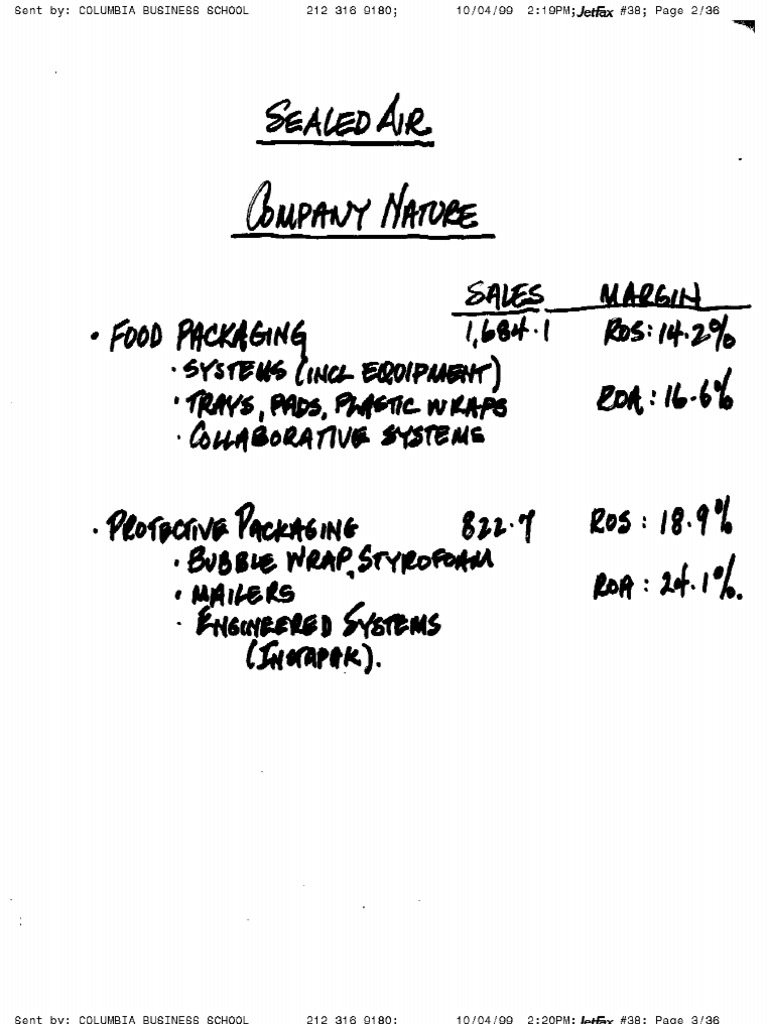 Sent by: COLUMBIA BUSINESS SCHOOL 212 316 9180; 10/04/99 2:19PM; JetFax #38; Page 2/36
SEALED AIR
COMPANY NATURE
SALES MARGIN
• FOOD PACKAGING 1,684.1 ROS: 14.2%
• SYSTEMS (INCL EQUIPMENT)
• TRAYS, PADS, PLASTIC WRAPS ROA: 16.6%
• COLLABORATIVE SYSTEMS
• PROTECTIVE PACKAGING 822.7 ROS: 18.9%
• BUBBLE WRAP, STYROFOAM
• MAILERS ROA: 24.1%.
• ENGINEERED SYSTEMS
(INSTAPAK).
Sent by: COLUMBIA BUSINESS SCHOOL 212 316 9180; 10/04/99 2:20PM; JetFax #38; Page 3/36